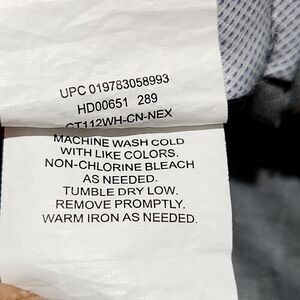 UPC 019783058993
HD00651 289
CT112WH-CN-NEX
MACHINE WASH COLD
WITH LIKE COLORS.
NON-CHLORINE BLEACH
AS NEEDED.
TUMBLE DRY LOW.
REMOVE PROMPTLY.
WARM IRON AS NEEDED.